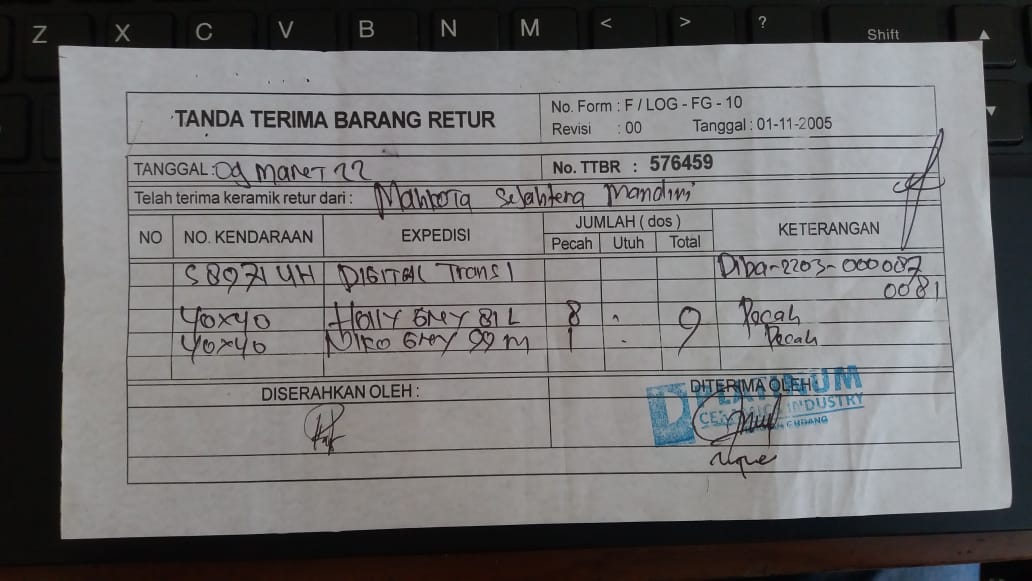 Z X C V B N M < > ? Shift
TANDA TERIMA BARANG RETUR
No. Form : F / LOG - FG - 10
Revisi : 00 Tanggal : 01-11-2005
TANGGAL : 09 Maret 22
No. TTBR : 576459
Telah terima keramik retur dari : Mahkota Sejahtera Mandiri
NO NO. KENDARAAN EXPEDISI JUMLAH ( dos ) KETERANGAN
Pecah Utuh Total
S 8971 UH DIGITAL Trans 1 Diba-2203-000087
0081
40x40 Holly Grey 81 L 8 - 9 Pecah
40x40 Niko Grey 99 M 1 - Pecah
DISERAHKAN OLEH : DITERIMA OLEH
PLATINUM
CERAMICS INDUSTRY